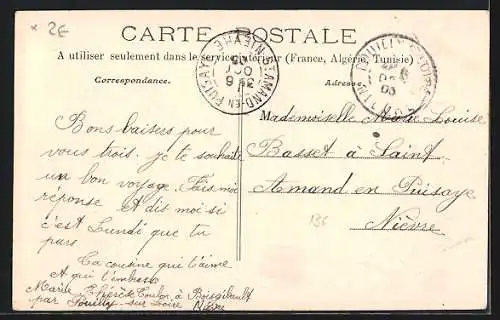 * 2E
CARTE POSTALE
A utiliser seulement dans le service intérieur (France, Algérie, Tunisie)
Correspondance.
Adresse
ST AMAND-EN-PUISAYE
NIEVRE
POUILLY
Bons baisers pour
vous trois. je te souhaite
un bon voyage. Fais moi
réponse et dit moi si
c'est Lundi que tu
pars
Ta cousine qui t'aime
A qui t'embrasse
Marie Thérèse à Boisgibault
par Pouilly sur Loire Nièvre
Mademoiselle Marie Louise
Basset à Saint
Amand en Puisaye
Nièvre